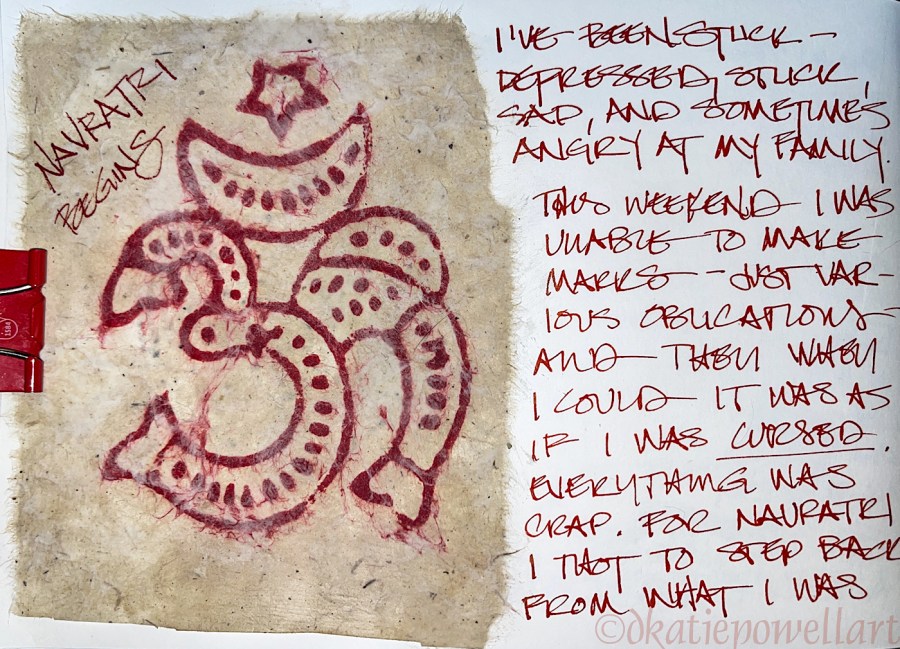 NAVRATRI
BEGINS
I'VE BEEN STUCK –
DEPRESSED, STUCK,
SAD, AND SOMETIMES
ANGRY AT MY FAMILY.
THIS WEEKEND I WAS
UNABLE TO MAKE
MARKS – JUST VAR-
IOUS OBLIGATIONS –
AND THEN WHEN
I COULD IT WAS AS
IF I WAS CURSED.
EVERYTHING WAS
CRAP. FOR NAVRATRI
I THOT TO STEP BACK
FROM WHAT I WAS
©dkatiepowellart
1584